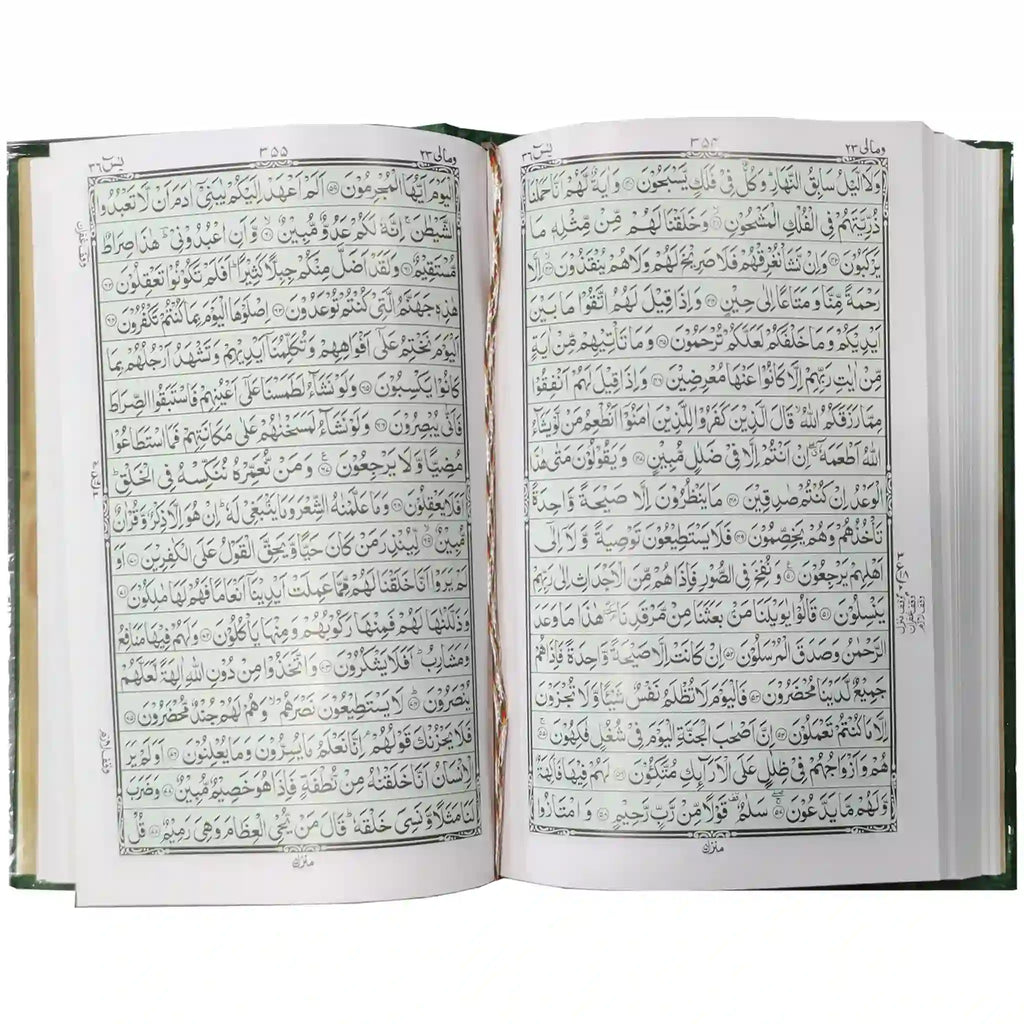 ومالی ٢٣ ٣٥٤ یٰسٓ ٣٦
وَلَا الَّيْلُ سَابِقُ النَّهَارِ ؕ وَكُلٌّ فِىْ فَلَكٍ يَّسْبَحُوْنَ ﴿٤٠﴾ وَاٰيَةٌ لَّهُمْ اَنَّا حَمَلْنَا
ذُرِّيَّتَهُمْ فِى الْفُلْكِ الْمَشْحُوْنِ ﴿٤١﴾ وَخَلَقْنَا لَهُمْ مِّنْ مِّثْلِهٖ مَا
يَرْكَبُوْنَ ﴿٤٢﴾ وَاِنْ نَّشَاْ نُغْرِقْهُمْ فَلَا صَرِيْخَ لَهُمْ وَلَا هُمْ يُنْقَذُوْنَ ﴿٤٣﴾ اِلَّا
رَحْمَةً مِّنَّا وَمَتَاعًا اِلٰى حِيْنٍ ﴿٤٤﴾ وَاِذَا قِيْلَ لَهُمُ اتَّقُوْا مَا بَيْنَ
اَيْدِيْكُمْ وَمَا خَلْفَكُمْ لَعَلَّكُمْ تُرْحَمُوْنَ ﴿٤٥﴾ وَمَا تَاْتِيْهِمْ مِّنْ اٰيَةٍ
مِّنْ اٰيٰتِ رَبِّهِمْ اِلَّا كَانُوْا عَنْهَا مُعْرِضِيْنَ ﴿٤٦﴾ وَاِذَا قِيْلَ لَهُمْ اَنْفِقُوْا
مِمَّا رَزَقَكُمُ اللّٰهُ ۙ قَالَ الَّذِيْنَ كَفَرُوْا لِلَّذِيْنَ اٰمَنُوْۤا اَنُطْعِمُ مَنْ لَّوْ يَشَآءُ
اللّٰهُ اَطْعَمَهٗۤ ۖ اِنْ اَنْتُمْ اِلَّا فِىْ ضَلٰلٍ مُّبِيْنٍ ﴿٤٧﴾ وَيَقُوْلُوْنَ مَتٰى هٰذَا
الْوَعْدُ اِنْ كُنْتُمْ صٰدِقِيْنَ ﴿٤٨﴾ مَا يَنْظُرُوْنَ اِلَّا صَيْحَةً وَّاحِدَةً
تَاْخُذُهُمْ وَهُمْ يَخِصِّمُوْنَ ﴿٤٩﴾ فَلَا يَسْتَطِيْعُوْنَ تَوْصِيَةً وَّلَاۤ اِلٰٓى
اَهْلِهِمْ يَرْجِعُوْنَ ﴿٥٠﴾ وَنُفِخَ فِى الصُّوْرِ فَاِذَا هُمْ مِّنَ الْاَجْدَاثِ اِلٰى رَبِّهِمْ
يَنْسِلُوْنَ ﴿٥١﴾ قَالُوْا يٰوَيْلَنَا مَنْۢ بَعَثَنَا مِنْ مَّرْقَدِنَا ۘ هٰذَا مَا وَعَدَ
الرَّحْمٰنُ وَصَدَقَ الْمُرْسَلُوْنَ ﴿٥٢﴾ اِنْ كَانَتْ اِلَّا صَيْحَةً وَّاحِدَةً فَاِذَا هُمْ
جَمِيْعٌ لَّدَيْنَا مُحْضَرُوْنَ ﴿٥٣﴾ فَالْيَوْمَ لَا تُظْلَمُ نَفْسٌ شَيْئًا وَّلَا تُجْزَوْنَ
اِلَّا مَا كُنْتُمْ تَعْمَلُوْنَ ﴿٥٤﴾ اِنَّ اَصْحٰبَ الْجَنَّةِ الْيَوْمَ فِىْ شُغُلٍ فٰكِهُوْنَ ﴿٥٥﴾
هُمْ وَاَزْوَاجُهُمْ فِىْ ظِلٰلٍ عَلَى الْاَرَآئِكِ مُتَّكِـُٔوْنَ ﴿٥٦﴾ لَهُمْ فِيْهَا فَاكِهَةٌ
وَّلَهُمْ مَّا يَدَّعُوْنَ ﴿٥٧﴾ سَلٰمٌ ۟ قَوْلًا مِّنْ رَّبٍّ رَّحِيْمٍ ﴿٥٨﴾ وَامْتَازُوا
ومالی ٢٣ ٣٥٥ یٰسٓ ٣٦
الْيَوْمَ اَيُّهَا الْمُجْرِمُوْنَ ﴿٥٩﴾ اَلَمْ اَعْهَدْ اِلَيْكُمْ يٰبَنِىْۤ اٰدَمَ اَنْ لَّا تَعْبُدُوا
الشَّيْطٰنَ ۚ اِنَّهٗ لَكُمْ عَدُوٌّ مُّبِيْنٌ ﴿٦٠﴾ وَّاَنِ اعْبُدُوْنِىْ ؕ هٰذَا صِرَاطٌ
مُّسْتَقِيْمٌ ﴿٦١﴾ وَلَقَدْ اَضَلَّ مِنْكُمْ جِبِلًّا كَثِيْرًا ؕ اَفَلَمْ تَكُوْنُوْا تَعْقِلُوْنَ ﴿٦٢﴾
هٰذِهٖ جَهَنَّمُ الَّتِىْ كُنْتُمْ تُوْعَدُوْنَ ﴿٦٣﴾ اِصْلَوْهَا الْيَوْمَ بِمَا كُنْتُمْ تَكْفُرُوْنَ ﴿٦٤﴾
اَلْيَوْمَ نَخْتِمُ عَلٰٓى اَفْوَاهِهِمْ وَتُكَلِّمُنَاۤ اَيْدِيْهِمْ وَتَشْهَدُ اَرْجُلُهُمْ بِمَا
كَانُوْا يَكْسِبُوْنَ ﴿٦٥﴾ وَلَوْ نَشَآءُ لَطَمَسْنَا عَلٰٓى اَعْيُنِهِمْ فَاسْتَبَقُوا الصِّرَاطَ
فَاَنّٰى يُبْصِرُوْنَ ﴿٦٦﴾ وَلَوْ نَشَآءُ لَمَسَخْنٰهُمْ عَلٰى مَكَانَتِهِمْ فَمَا اسْتَطَاعُوْا
مُضِيًّا وَّلَا يَرْجِعُوْنَ ﴿٦٧﴾ وَمَنْ نُّعَمِّرْهُ نُنَكِّسْهُ فِى الْخَلْقِ ؕ
اَفَلَا يَعْقِلُوْنَ ﴿٦٨﴾ وَمَا عَلَّمْنٰهُ الشِّعْرَ وَمَا يَنْۢبَغِىْ لَهٗ ؕ اِنْ هُوَ اِلَّا ذِكْرٌ وَّقُرْاٰنٌ
مُّبِيْنٌ ﴿٦٩﴾ لِّيُنْذِرَ مَنْ كَانَ حَيًّا وَّيَحِقَّ الْقَوْلُ عَلَى الْكٰفِرِيْنَ ﴿٧٠﴾ اَوَ
لَمْ يَرَوْا اَنَّا خَلَقْنَا لَهُمْ مِّمَّا عَمِلَتْ اَيْدِيْنَاۤ اَنْعَامًا فَهُمْ لَهَا مٰلِكُوْنَ ﴿٧١﴾
وَذَلَّلْنٰهَا لَهُمْ فَمِنْهَا رَكُوْبُهُمْ وَمِنْهَا يَاْكُلُوْنَ ﴿٧٢﴾ وَلَهُمْ فِيْهَا مَنَافِعُ
وَمَشَارِبُ ؕ اَفَلَا يَشْكُرُوْنَ ﴿٧٣﴾ وَاتَّخَذُوْا مِنْ دُوْنِ اللّٰهِ اٰلِهَةً لَّعَلَّهُمْ
يُنْصَرُوْنَ ﴿٧٤﴾ لَا يَسْتَطِيْعُوْنَ نَصْرَهُمْ ۙ وَهُمْ لَهُمْ جُنْدٌ مُّحْضَرُوْنَ ﴿٧٥﴾
فَلَا يَحْزُنْكَ قَوْلُهُمْ ۘ اِنَّا نَعْلَمُ مَا يُسِرُّوْنَ وَمَا يُعْلِنُوْنَ ﴿٧٦﴾ اَوَلَمْ يَرَ
الْاِنْسَانُ اَنَّا خَلَقْنٰهُ مِنْ نُّطْفَةٍ فَاِذَا هُوَ خَصِيْمٌ مُّبِيْنٌ ﴿٧٧﴾ وَضَرَبَ
لَنَا مَثَلًا وَّنَسِىَ خَلْقَهٗ ؕ قَالَ مَنْ يُّحْىِ الْعِظَامَ وَهِىَ رَمِيْمٌ ﴿٧٨﴾ قُلْ